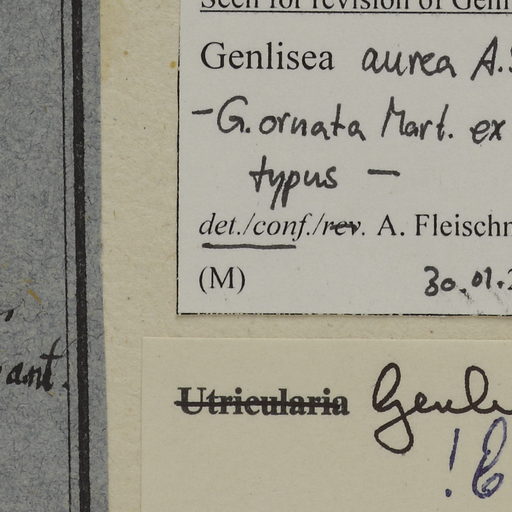 Seen for revision of Genl
Genlisea aurea A.S
- G. ornata Mart. ex
typus —
det./conf./rev. A. Fleischm
(M) 30.01.2
ant.
Utricularia Genli
! B